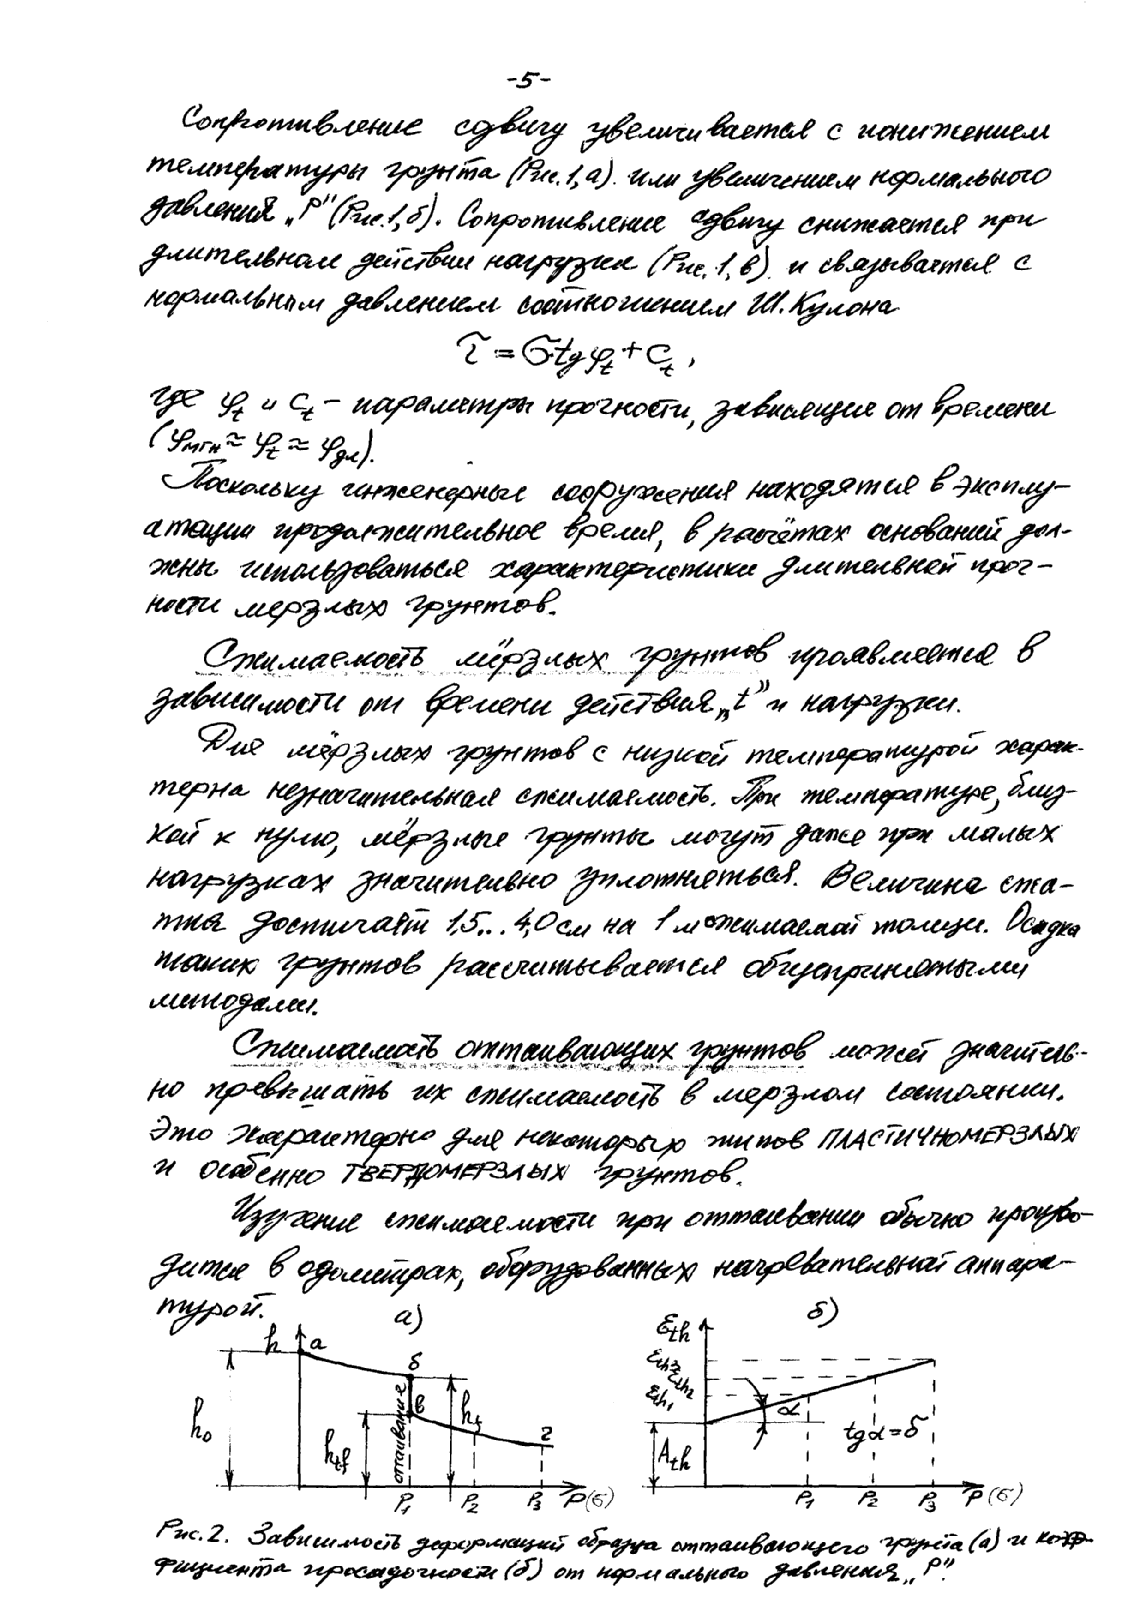 -5-
Сопротивление сдвигу увеличивается с понижением
температуры грунта (Рис.1,а) или увеличением нормального
давления „P" (Рис.1,б). Сопротивление сдвигу снижается при
длительном действии нагрузки (Рис.1,в) и связывается с
нормальным давлением соотношением Ш.Кулона
τ = σ·tg φt + Ct ,
где φt и Ct – параметры прочности, зависящие от времени
(φмгн ≈ φt ≈ φдл).
Поскольку инженерные сооружения находятся в эксплу-
атации продолжительное время, в расчётах оснований дол-
жны использоваться характеристики длительной проч-
ности мерзлых грунтов.
Сжимаемость мёрзлых грунтов проявляется в
зависимости от времени действия „t" и нагрузки.
Для мёрзлых грунтов с низкой температурой харак-
терна незначительная сжимаемость. При температуре, близ-
кой к нулю, мёрзлые грунты могут даже при малых
нагрузках значительно уплотняться. Величина сжа-
тия достигает 1,5... 4,0 см на 1 м сжимаемой толщи. Осадка
таких грунтов рассчитывается общепринятыми
методами.
Сжимаемость оттаивающих грунтов может значитель-
но превышать их сжимаемость в мерзлом состоянии.
Это характерно для некоторых типов ПЛАСТИЧНОМЕРЗЛЫХ
и особенно ТВЕРДОМЕРЗЛЫХ грунтов.
Изучение сжимаемости при оттаивании обычно произво-
дится в одометрах, оборудованных нагревательной аппара-
турой.
а)
h
а
б
в
г
h₀
htf
hf
оттаивание
P₁
P₂
P₃
P(σ)
б)
εth
εth3
εth2
εth1
Ath
α
tg α = δ
P₁
P₂
P₃
P(σ)
Рис.2. Зависимость деформаций образца оттаивающего грунта (а) и коэф-
фициента просадочности (б) от нормального давления „P".